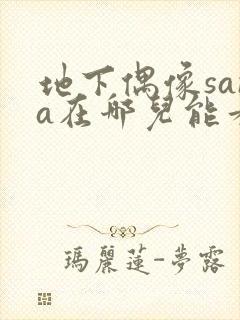 地下偶像sa
a在哪兒能
瑪麗蓮-夢露